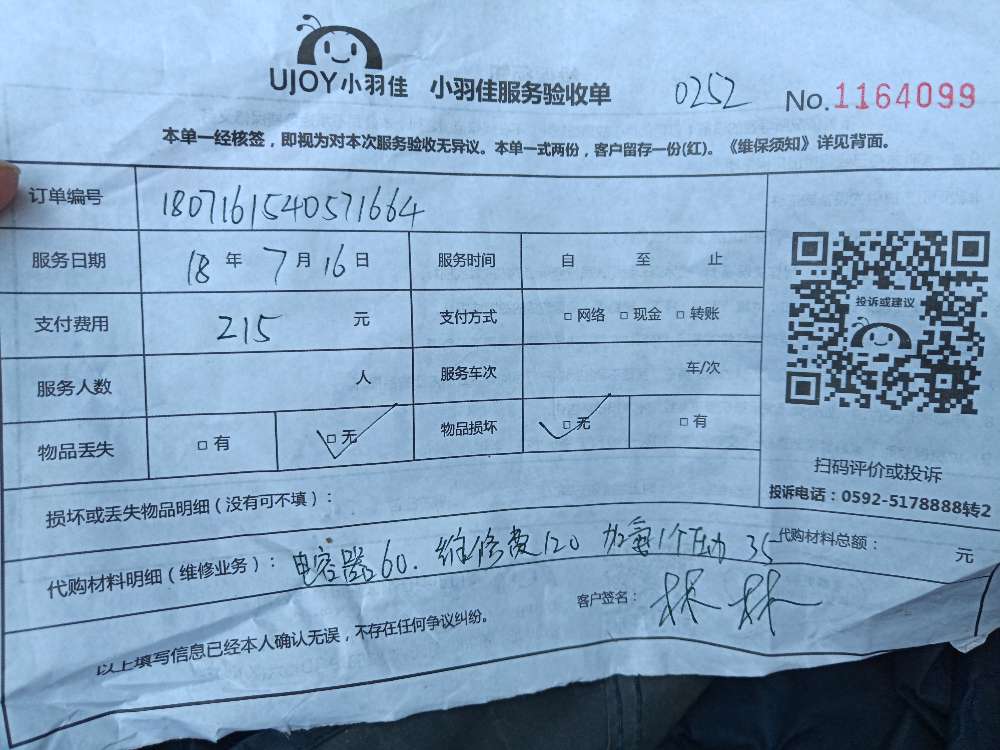 UJOY小羽佳 小羽佳服务验收单 0252 No.1164099
本单一经核签，即视为对本次服务验收无异议。本单一式两份，客户留存一份(红)。《维保须知》详见背面。
订单编号 1807161540571664
服务日期 18年7月16日 服务时间 自 至 止
支付费用 215 元 支付方式 □网络 □现金 □转账
投诉或建议
服务人数 人 服务车次 车/次
物品丢失 □有 □无 物品损坏 □无 □有
扫码评价或投诉
投诉电话：0592-5178888转2
损坏或丢失物品明细（没有可不填）：
代购材料明细（维修业务）：电容器60. 维修费120 加氟1个压力 35 代购材料总额： 元
客户签名：林林
以上填写信息已经本人确认无误，不存在任何争议纠纷。